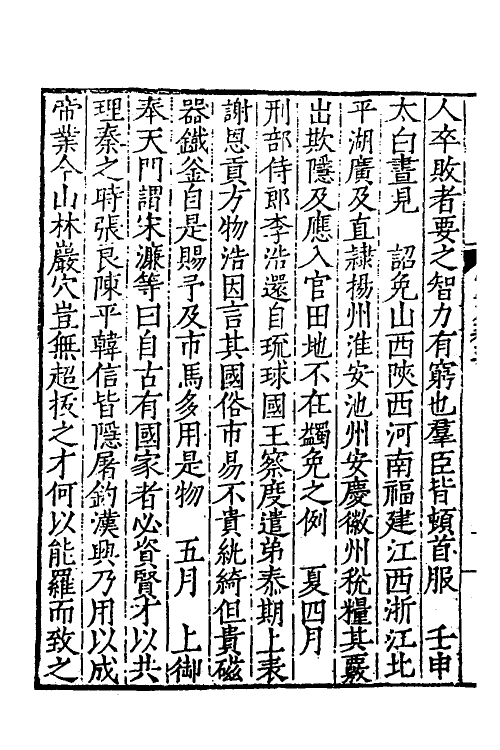 人卒敗者要之智力有窮也羣臣皆頓首服　壬申
太白晝見　詔免山西陝西河南福建江西浙江北
平湖廣及直隷揚州淮安池州安慶徽州稅糧其覈
出欺隱及應入官田地不在蠲免之例　夏四月
刑部侍郎李浩還自琉球國王察度遣弟泰期上表
謝恩貢方物浩因言其國俗市易不貴紈綺但貴磁
器鐵釜自是賜予及市馬多用是物　五月　上御
奉天門謂宋濂等曰自古有國家者必資賢才以共
理秦之時張良陳平韓信皆隱屠釣漢興乃用以成
帝業今山林巖穴豈無超拔之才何以能羅而致之